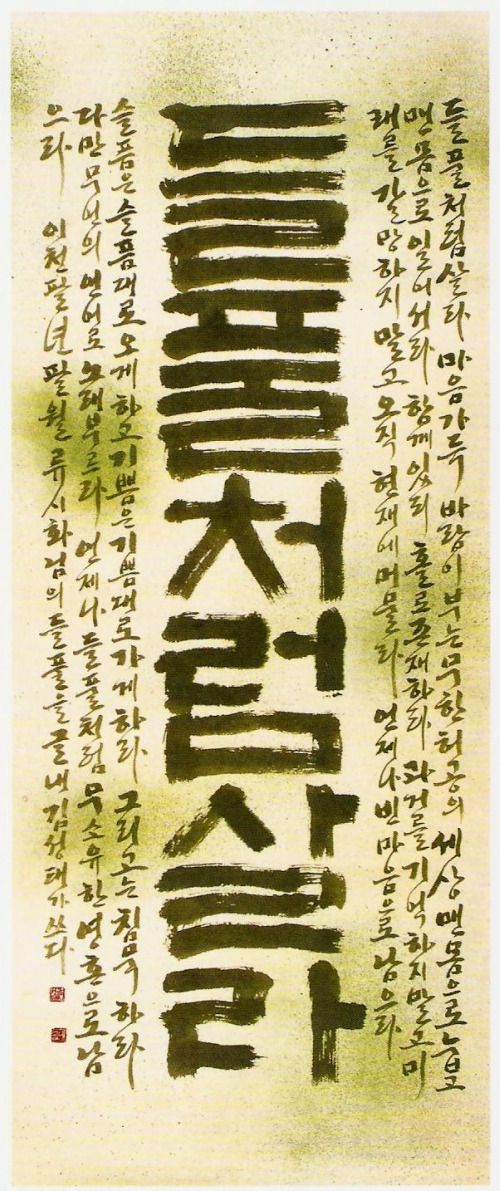 들풀처럼 살라 마음 가득 바람이 부는 무한 허공의 세상 맨몸으로 눕고
맨몸으로 일어서라 함께 있되 홀로 존재하라 과거를 기억하지 말고 미
래를 갈망하지 말고 오직 현재에 머물라 언제나 빈 마음으로 남으라
들풀처럼살라
슬픔은 슬픔대로 오게 하고 기쁨은 기쁨대로 가게 하라 그리고는 침묵하라
다만 무언의 언어로 노래부르라 언제나 들풀처럼 무소유한 영혼으로 남
으라 이천팔년 팔월 류시화님의 들풀을 솔내 김성태가 쓰다